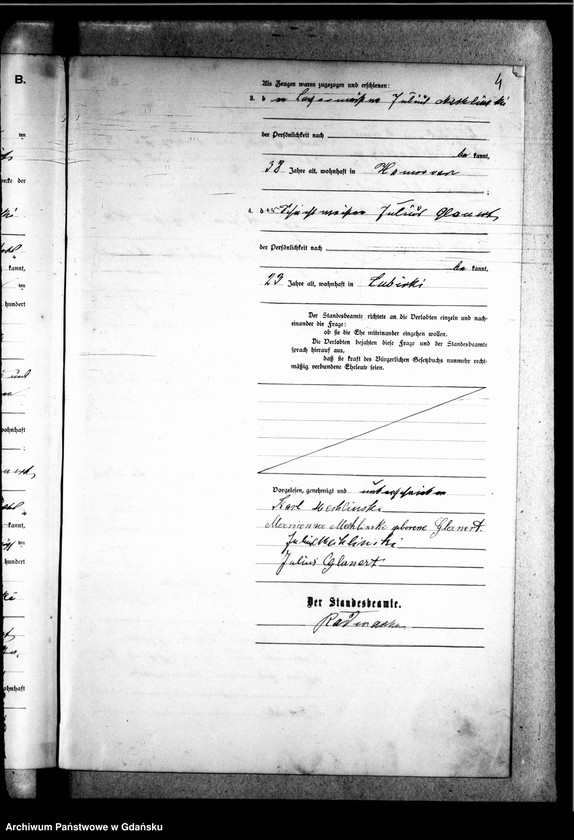 B.
4
Als Zeugen waren zugezogen und erschienen:
3. der Julius Mechlinski
der Persönlichkeit nach
be kannt,
38 Jahre alt, wohnhaft in Hannover
;
4. der Schachtmeister Julius Glanert,
der Persönlichkeit nach
be kannt,
23 Jahre alt, wohnhaft in
Der Standesbeamte richtete an die Verlobten einzeln und nach-
einander die Frage:
ob sie die Ehe miteinander eingehen wollen.
Die Verlobten bejahten diese Frage und der Standesbeamte
sprach hierauf aus,
daß sie kraft des Bürgerlichen Gesetzbuchs nunmehr recht-
mäßig verbundene Eheleute seien.
Vorgelesen, genehmigt und unterschrieben
Karl Mechlinski
Marianna Mechlinski geborene Glanert.
Julius Mechlinski
Julius Glanert
Der Standesbeamte.
ten
kannt,
ten
hundert
wohnhaft
;
kannt,
ten
hundert
wohnhaft
Archiwum Państwowe w Gdańsku